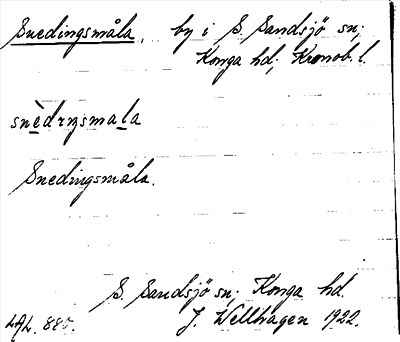 Snedingsmåla, by i S. Sandsjö sn;
Konga hd; Kronob. l.
snèdɪŋsmala
Snedingsmåla.
S. Sandsjö sn; Konga hd.
LAL. 885. J. Wellhagen 1922.